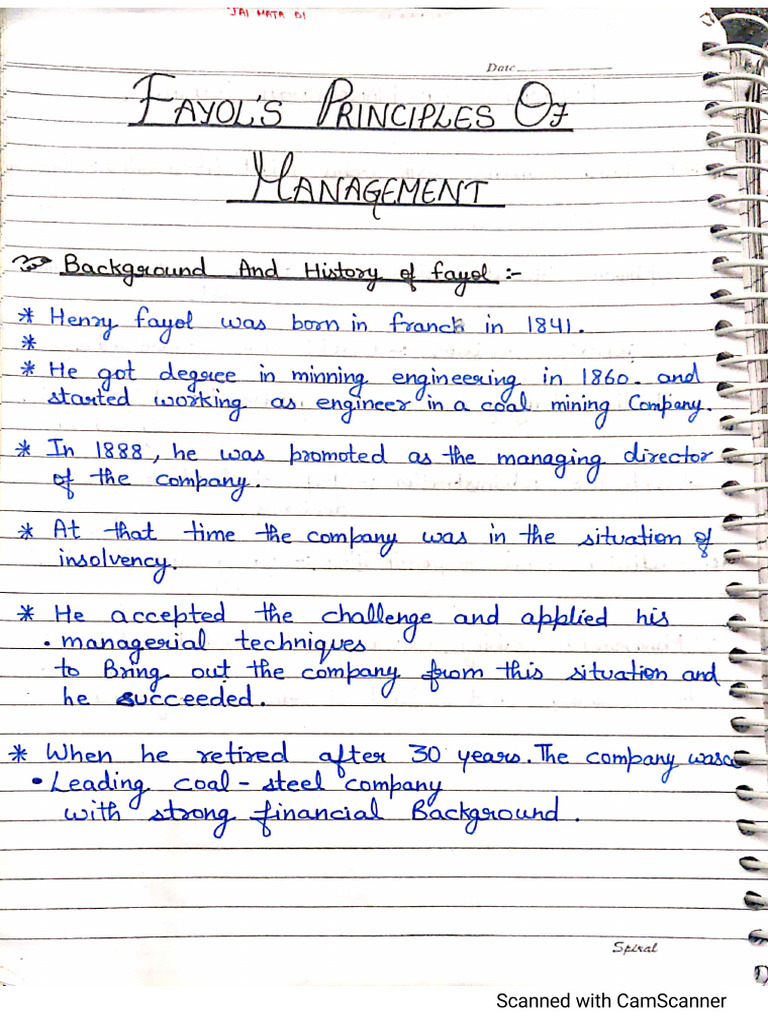 JAI MATA DI
Date
FAYOL'S PRINCIPLES OF
MANAGEMENT
Background And History of fayol :-
* Henry fayol was born in franch in 1841.
*
* He got degree in minning engineering in 1860. and
started working as engineer in a coal mining Company.
* In 1888, he was promoted as the managing director
of the company.
* At that time the company was in the situation of
insolvency.
* He accepted the challenge and applied his
• managerial techniques
to Bring out the company from this situation and
he succeeded.
* When he retired after 30 years. The company was a
• Leading coal - steel company
with strong financial Background.
Spiral
Scanned with CamScanner